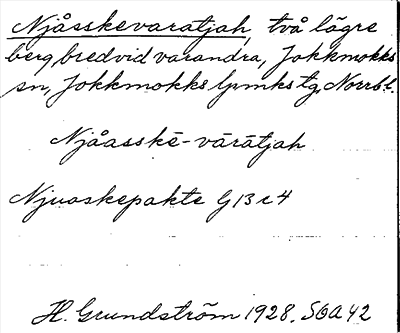 Njåsskevaratjah, två lägre
berg, bredvid varandra, Jokkmokks
sn, Jokkmokks lpmks tg, Norrb. l.
Njåasskē-vārātjah
Njuoskepakte G 13 c 4
H. Grundström 1928. SOA 42